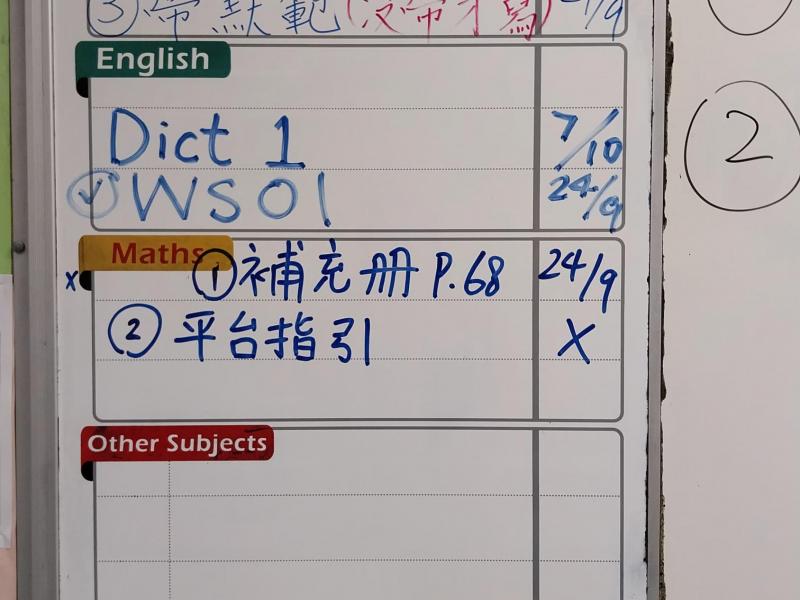 ③ 帶默範(沒帶才寫) 24/9
English
Dict 1 7/10
✓ WS 01 24/9
Maths
x ① 補充册 P.68 24/9
② 平台指引 X
Other Subjects
2